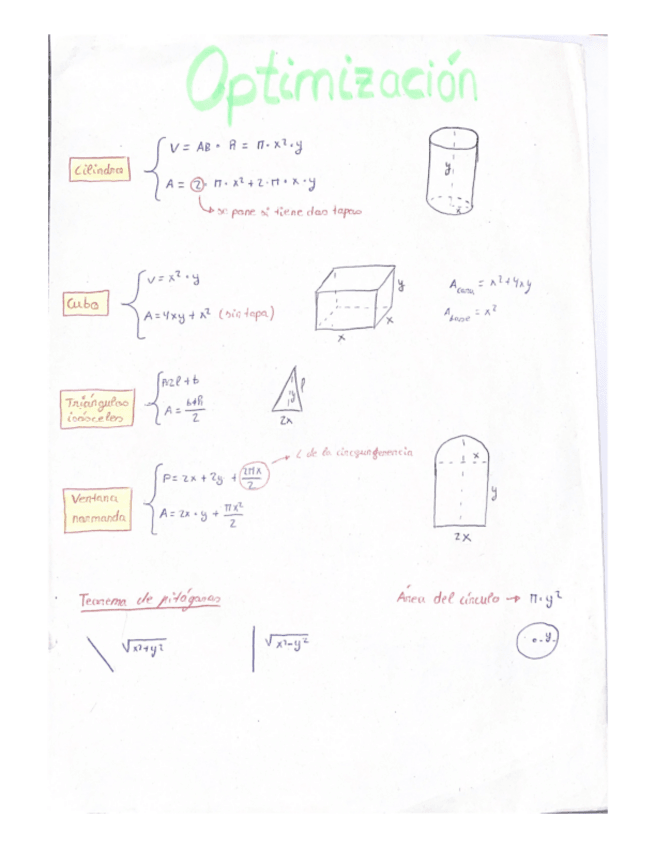 Optimización
Cilindro
V = AB · h = π · x² · y
A = 2 · π · x² + 2 · π · x · y
se pone si tiene dos tapas
y
x
Cubo
V = x² · y
A = 4xy + x² (sin tapa)
y
x
x
A = x² + 4xy
A base = x²
Triángulos
isósceles
P=2l + b
A = b·h/2
l
y
2x
Ventana
normanda
P = 2x + 2y + 2πx/2
L de la circunferencia
A = 2x · y + πx²/2
x
y
2x
Teorema de pitágoras
Área del círculo → π · y²
√x²+y²
√x²-y²
y